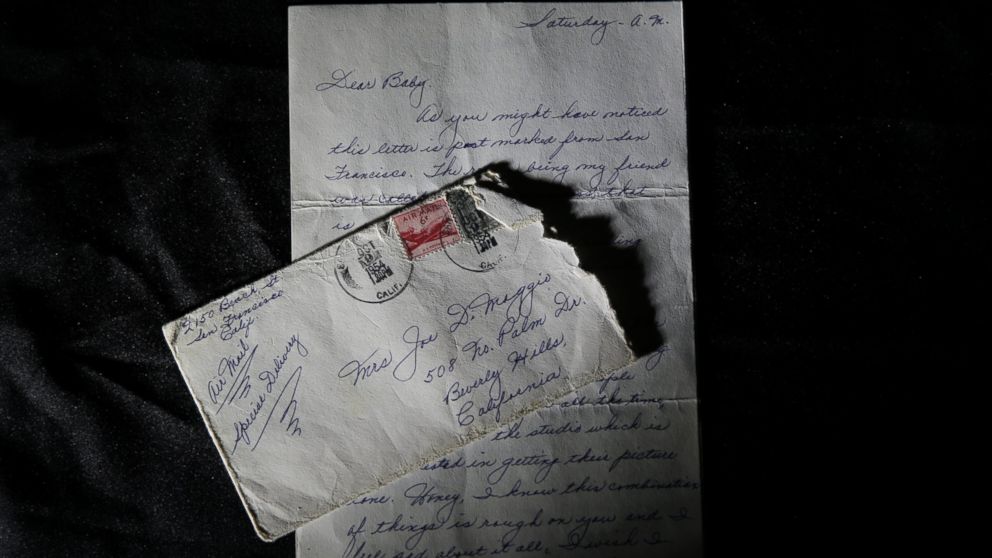 Saturday - A.M.
Dear Baby,
As you might have noticed
this letter is post marked from San
Francisco. The being my friend
was that
is
AIR MAIL
6¢
OCT
1954
CALIF.
CALIF.
2150 Beach St
San Francisco
Calif
Air Mail
Special Delivery
Mrs Joe Di Maggio
508 No. Palm Dr.
Beverly Hills,
California
all the time,
the studio which is
in getting their picture
Honey, I know this combination
of things is rough on you and I
feel sad about it all, I wish I